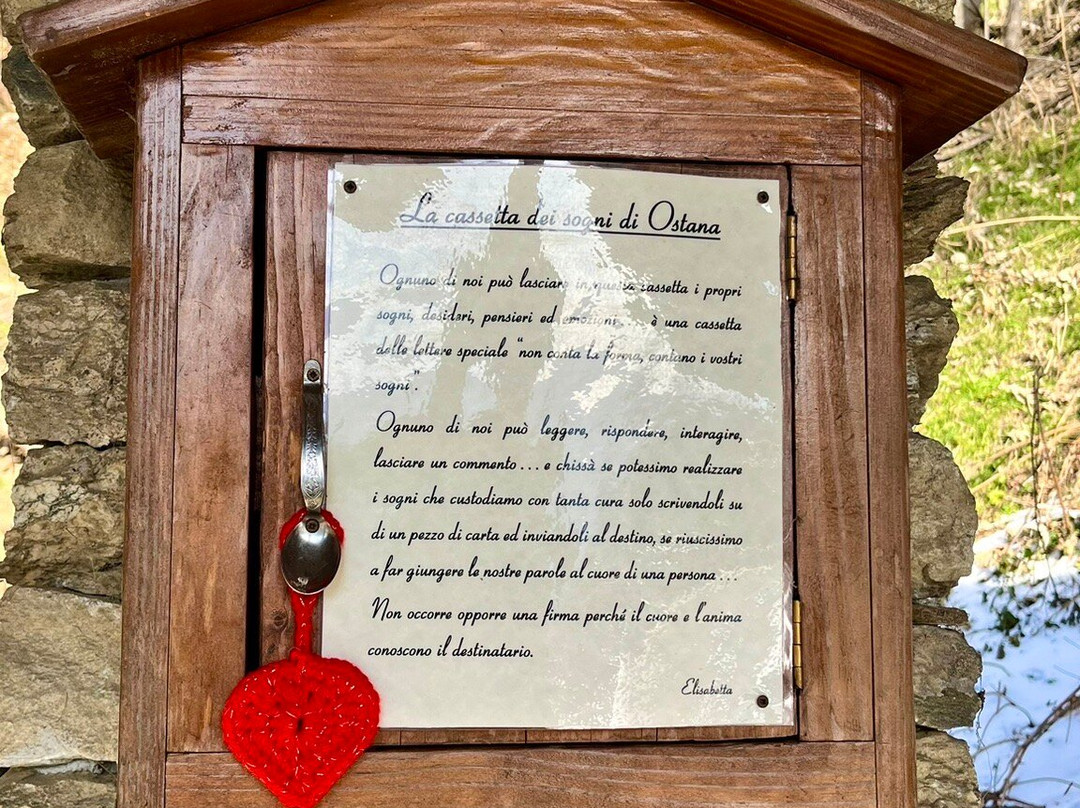 La cassetta dei sogni di Ostana
Ognuno di noi può lasciare in questa cassetta i propri
sogni, desideri, pensieri ed emozioni, ... è una cassetta
delle lettere speciale "non conta la forma, contano i vostri
sogni".
Ognuno di noi può leggere, rispondere, interagire,
lasciare un commento ... e chissà se potessimo realizzare
i sogni che custodiamo con tanta cura solo scrivendoli su
di un pezzo di carta ed inviandoli al destino, se riuscissimo
a far giungere le nostre parole al cuore di una persona ...
Non occorre opporre una firma perché il cuore e l'anima
conoscono il destinatario.
Elisabetta